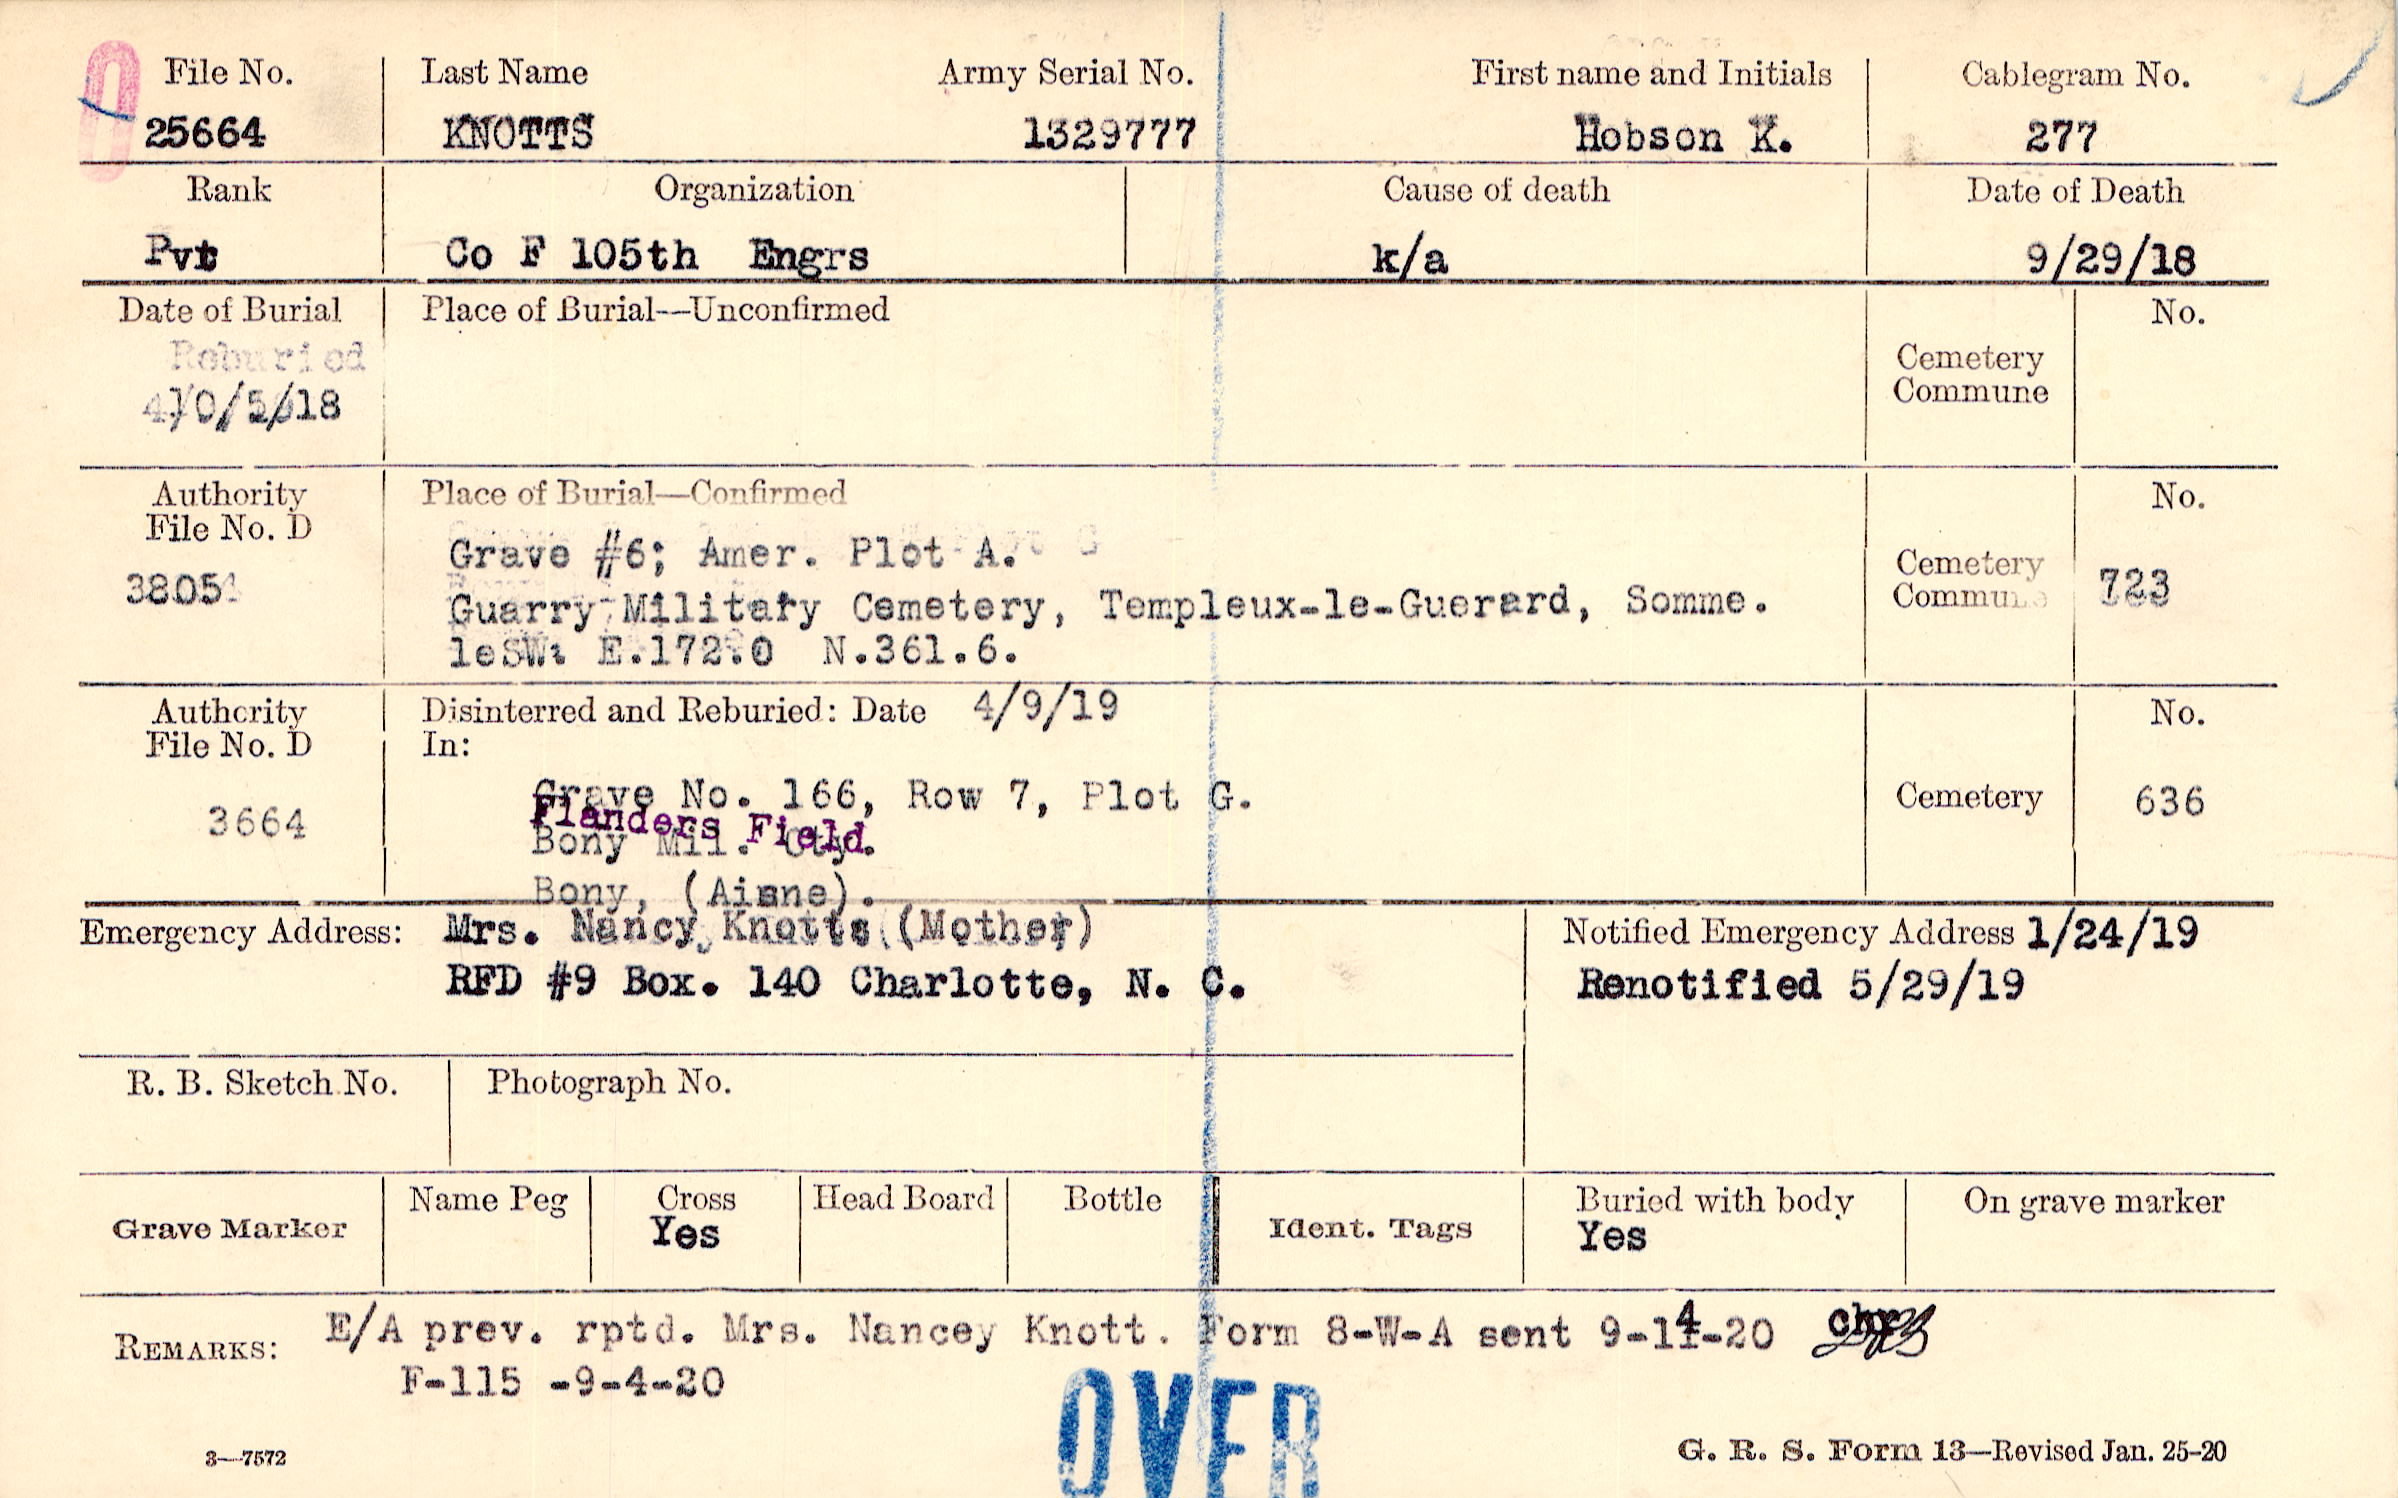 File No. Last Name Army Serial No. First name and Initials Cablegram No.
25664 KNOTTS 1329777 Hobson K. 277
Rank Organization Cause of death Date of Death
Pvt Co F 105th Engrs k/a 9/29/18
Date of Burial Place of Burial—Unconfirmed No.
Reburied
Cemetery
Commune
10/5/18
Authority Place of Burial—Confirmed No.
File No. D
Grave #6; Amer. Plot A.
38051 Cemetery 723
Commune
Guarry Military Cemetery, Templeux-le-Guerard, Somme.
E.172.0 N.361.6.
Authority Disinterred and Reburied: Date 4/9/19 No.
File No. D In:
Grave No. 166, Row 7, Plot G.
3664 Cemetery 636
Flanders Field.
Bony Mil. Cty.
Bony, (Aisne).
Emergency Address: Mrs. Nancy Knotts (Mother) Notified Emergency Address 1/24/19
RFD #9 Box. 140 Charlotte, N. C. Renotified 5/29/19
R. B. Sketch No. Photograph No.
Grave Marker Name Peg Cross Head Board Bottle Ident. Tags Buried with body On grave marker
Yes Yes
REMARKS: E/A prev. rptd. Mrs. Nancey Knott. Form 8-W-A sent 9-14-20
F-115 -9-4-20
OVER
3—7572 G. R. S. Form 13—Revised Jan. 25-20